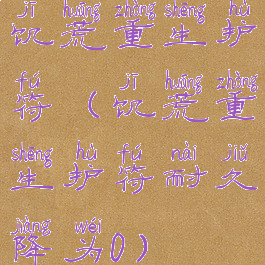 jī huāng zhòng shēng hù
饥荒重生护
fú jī huāng zhòng
符（饥荒重
shēng hù fú nài jiǔ
生护符耐久
jiàng wéi
降为0）